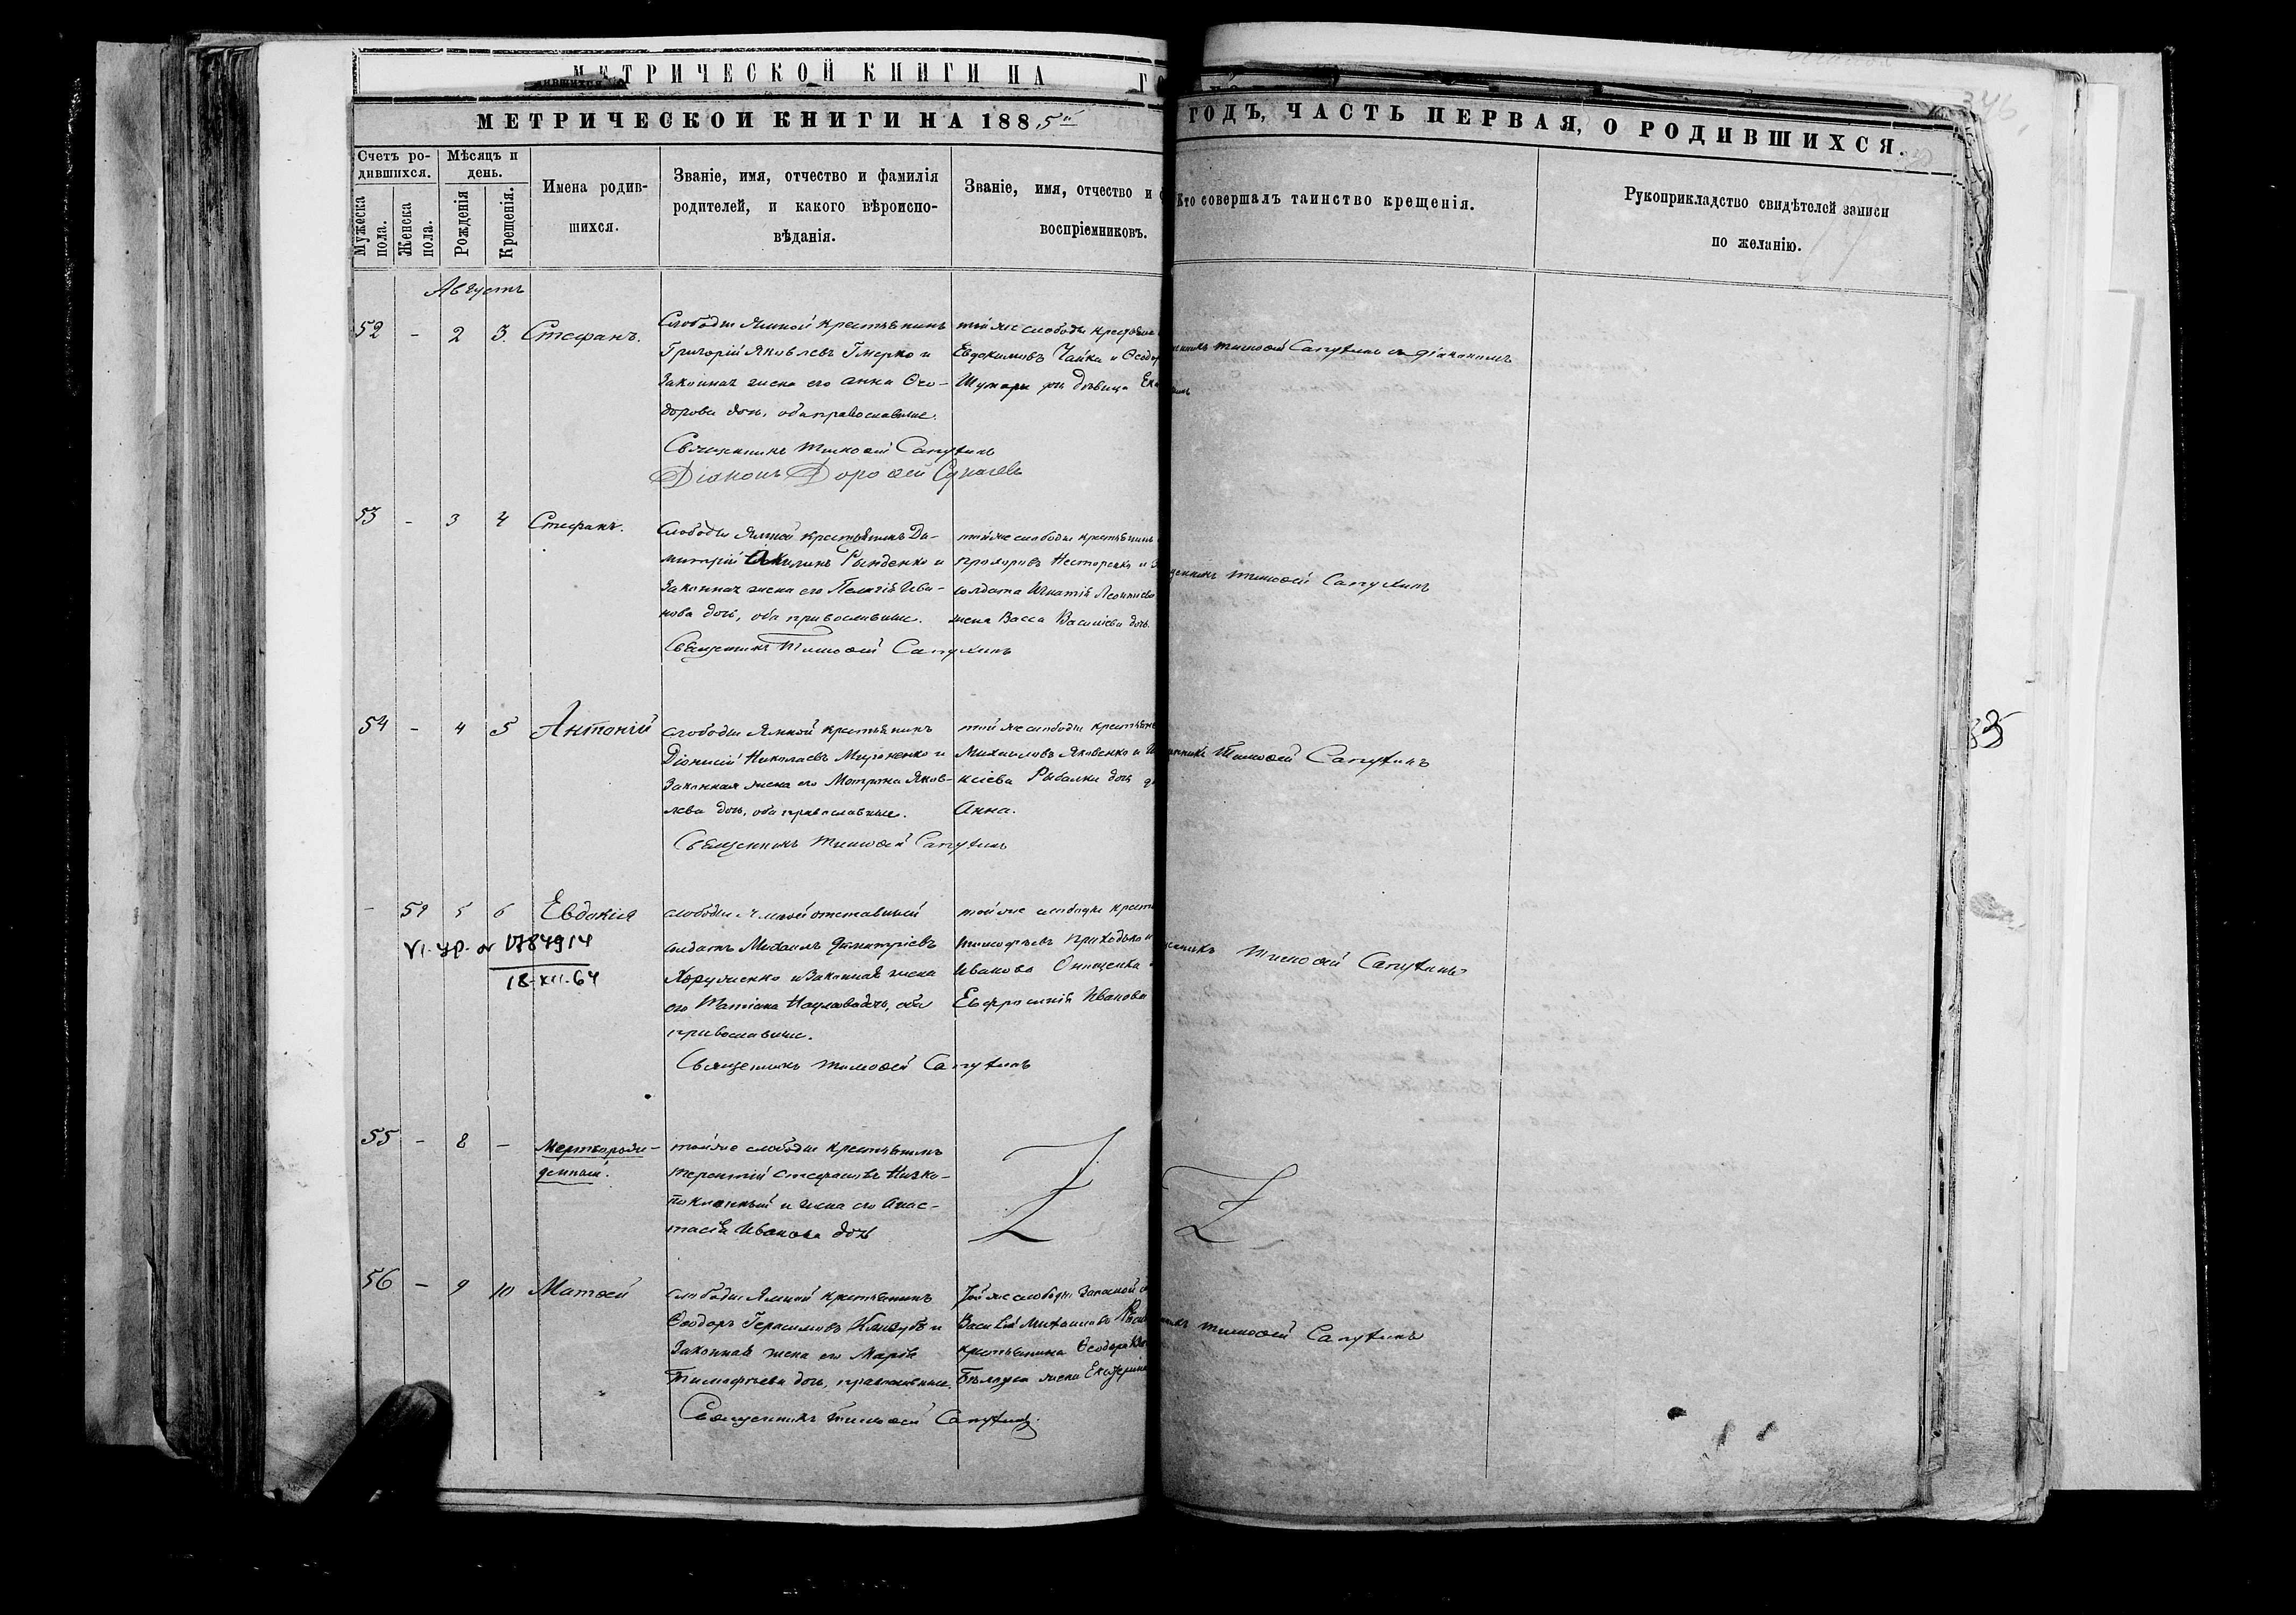 МЕТРИЧЕСКОЙ КНИГИ НА
МЕТРИЧЕСКОЙ КНИГИ НА 1885й
ГОДЪ, ЧАСТЬ ПЕРВАЯ, О РОДИВШИХСЯ.
346
Счетъ ро-
дившихся.
Мужеска
пола.
Женска
пола.
Мѣсяцъ и
день.
Рожденія
Крещенія.
Имена родив-
шихся.
Званіе, имя, отчество и фамилія
родителей, и какого вѣроиспо-
вѣданія.
Званіе, имя, отчество и
воспріемниковъ.
Кто совершалъ таинство крещенія.
Рукоприкладство свидѣтелей записи
по желанію.
Августъ
52 - 2 3. Стефанъ.
Слободы Ямной крестьянинъ
Григорій Яковлевъ Гмерко и
Законная жена его Анна Ѳео-
дорова дочь, оба православные.
Священникъ Тимоѳей Сапухинъ
Діаконъ Дороѳей
той же слободы
Евдокимовъ Чайка и
дѣвица
Тимоѳей Сапухинъ съ діакономъ
53 - 3 4 Стефанъ.
Слободы Ямной крестьянинъ Ди-
митрій и
Законная жена его Пелагія Ива-
нова дочь, оба православные.
Священникъ Тимоѳей Сапухинъ
той же слободы крестьянинъ
Прохоровъ Несторенко и
солдата Игнатія Леонтіева
жена Васса Василіева дочь.
Тимоѳей Сапухинъ
54 - 4 5 Антоній
слободы Ямной крестьянинъ
Діонисій Николаевъ Мироненко и
Законная жена его Матрона Яков-
лева дочь, оба православные.
Священникъ Тимоѳей Сапухинъ
той же слободы
Михаиловъ Яковенко и
Рыбалки дочь
Анна.
Тимоѳей Сапухинъ
- 59 5 6 Евдокія
VI. ур. № 1784914
18-XII.64
слободы Ямной отставный
солдатъ Михаилъ Димитріевъ
Хоруженко и Законная жена
его Татіана Наумова дочь, оба
православные.
Священникъ Тимоѳей Сапухинъ
той же слободы
Тимофѣевъ Приходько и
Иванова Онищенка
Евфросинія Иванова
Тимоѳей Сапухинъ
55 - 8 - Мертворож-
денный.
той же слободы крестьянинъ
Терентій Стефановъ Низко-
поклонный и жена его Анас-
тасія Иванова дочь
Z
Z
56 - 9 10 Матѳей
слободы Ямной крестьянинъ
Ѳеодоръ Герасимовъ и
Законная жена его Марія
Тимофѣева дочь, православные.
Священникъ Тимоѳей Сапухинъ.
Той же слободы Запасной
Василій Михаиловъ
крестьянина Ѳеодора
жена
Тимоѳей Сапухинъ